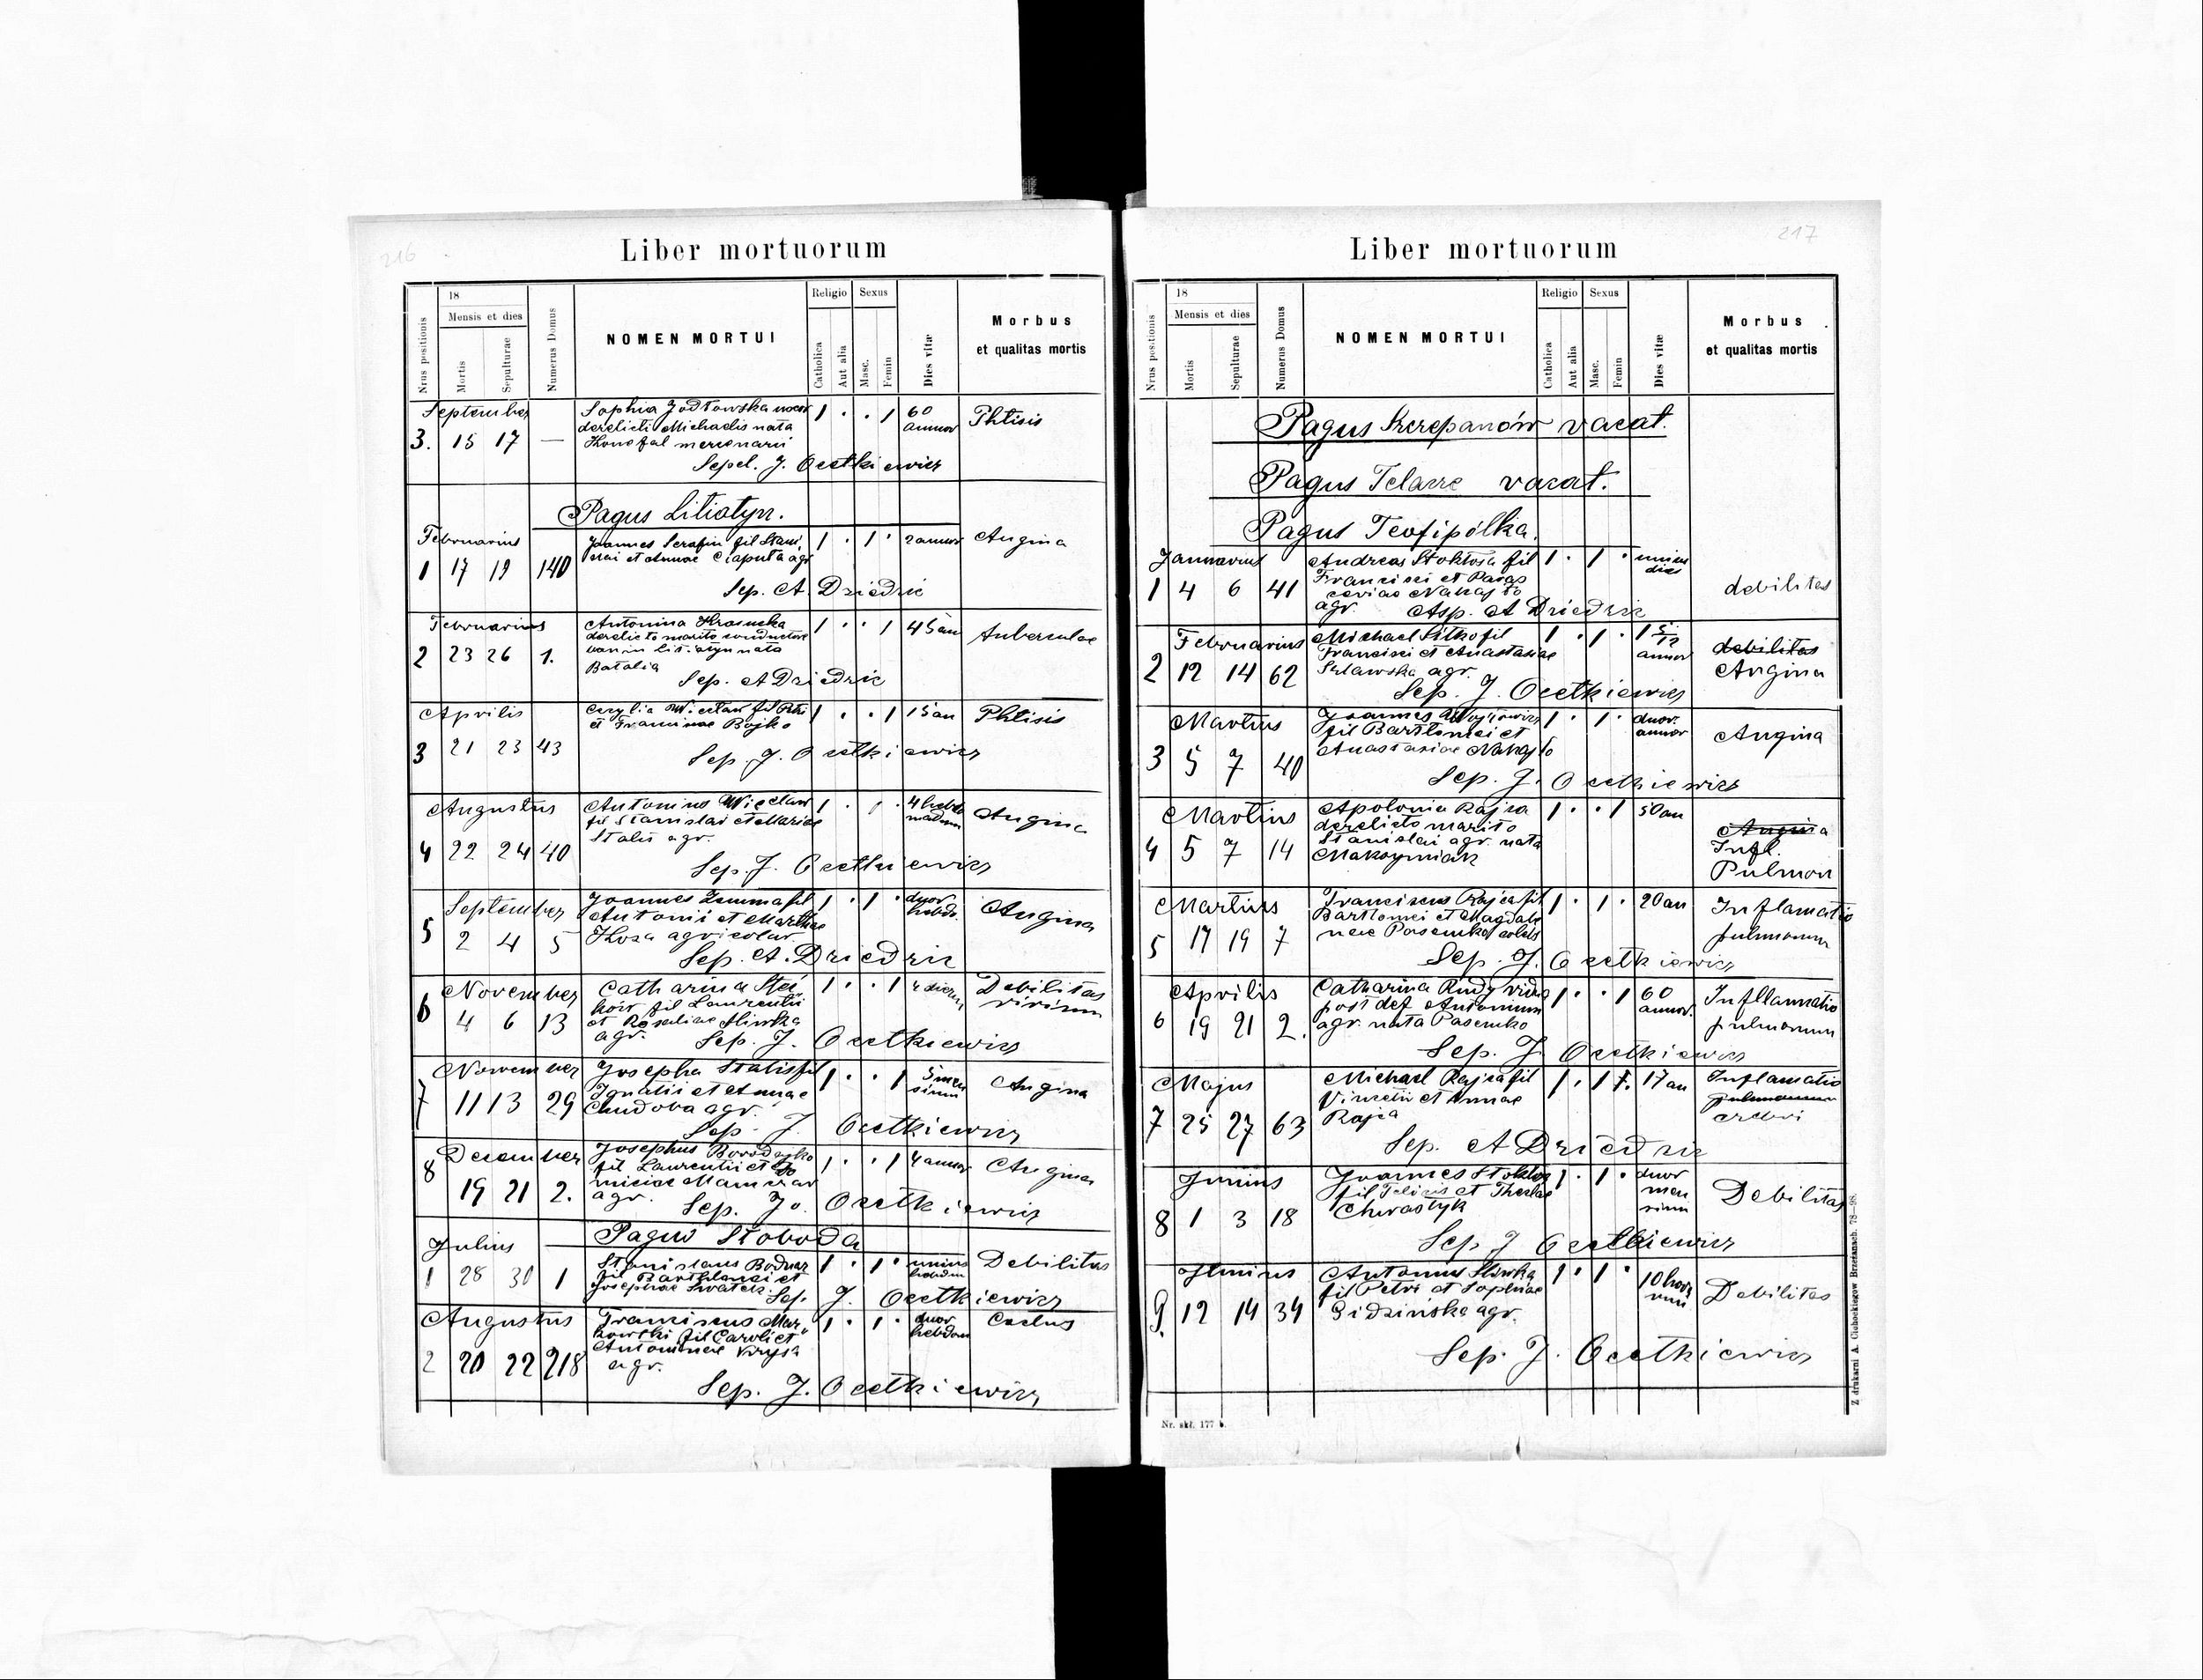 216
Liber mortuorum
Nrus positionis
18
Mensis et dies
Mortis
Sepulturae
Numerus Domus
NOMEN MORTUI
Religio
Catholica
Aut alia
Sexus
Masc.
Femin
Dies vitæ
Morbus
et qualitas mortis
September
3. 15 17 —
Sophia Jodłowska uxor
derelicti Michaelis nata
Konofal mercenarii
1 . . 1 60 annor Phtisis
Sepel. J. Ocetkiewicz
Pagus Litiatyn.
Februarius
1 17 19 140
Joannes Serafin fil Stani
slai et Annae Ciaputa agr
1 . 1 . 2 annor Angina
Sep. A. Dziedzic
Februarius
2 23 26 1.
Antonina
derelicto marito conductore
in Litiatyn nata
Batalia
1 . . 1 45 an Tuberculae
Sep. A Dziedzic
Aprilis
3 21 23 43
Więcław fil Petri
et Franciscae Bojko
1 . . 1 15 an Phtisis
Sep. J. Ocetkiewicz
Augustus
4 22 24 40
Antonius Więcław
fil Stanislai et Mariae
Stalis agr.
1 . 1 . 4 hebdo
madum Angina
Sep. J. Ocetkiewicz
September
5 2 4 5
Joannes Zemma fil
Antonii et Marthae
Koza agricolar.
1 . 1 . duor
hebdo. Angina
Sep. A. Dziedzic
November
6 4 6 13
Catharina
fil Laurentii
et Rosaliae Sliwka
agr.
1 . . 1 4 dierum Debilitas
virium
Sep. J. Ocetkiewicz
November
7 11 13 29
Josepha Stalis fil
Ignatii et Annae
Chudoba agr.
1 . . 1 5 men
sium Angina
Sep. J. Ocetkiewicz
December
8 19 21 2.
Josephus Borodajko
fil Laurentii et
agr.
1 . . 1 4 annor Angina
Sep. Jo. Ocetkiewicz
Pagus Słoboda
Julius
1 28 30 1
Stanislaus Bodnar
fil Barthlomei et
Josephae Swatek
1 . 1 . unius
hebdom Debilitas
Sep. J. Ocetkiewicz
Augustus
2 20 22 218
Franciscus Mar
kowski fil Caroli et
Antoninae Krysa
agr.
1 . 1 . duor
hebdom
Sep. J. Ocetkiewicz
217
Liber mortuorum
Nrus positionis
18
Mensis et dies
Mortis
Sepulturae
Numerus Domus
NOMEN MORTUI
Religio
Catholica
Aut alia
Sexus
Masc.
Femin
Dies vitæ
Morbus
et qualitas mortis
Pagus Szczepanów vacat.
Pagus Telacze vacat.
Pagus Teofipólka.
Januarius
1 4 6 41
Andreas Stokłosa fil
Francisci et Paras
ceviae Nahajło
agr.
1 . 1 . unius
diei debilitas
Asp. A Dziedzic
Februarius
2 12 14 62
Michael Sitko fil
Francisci et Anastasiae
Szlawska agr.
1 . 1 . 1 5/12
annor debilitas
Angina
Sep. J. Ocetkiewicz
Martius
3 5 7 40
Joannes Wojtowicz
fil Bartlomei et
Anastasiae Nahajło
1 . 1 . duor.
annor Angina
Sep. J. Ocetkiewicz
Martius
4 5 7 14
Apolonia Rajca
derelicto marito
Stanislai agr. nata
Maksymiak
1 . . 1 50 an Angina
Infl.
Pulmon
Martius
5 17 19 7
Franciscus Rajca fil
Bartlomei et Magdale
nae Pasemko
1 . 1 . 20 an Inflamatio
pulmonum
Sep. J. Ocetkiewicz
Aprilis
6 19 21 2.
Catharina Rudy vidua
post def Antonium
agr. nata Pasemko
1 . . 1 60
annor. Infllamatio
pulmonum
Sep. J. Ocetkiewicz
Majus
7 25 27 63
Michael Rajca fil
Vincetii et Annae
Rajca
1 . 1 . 17 an Inflamatio
pulmonum
Sep. A Dziedzic
Junius
8 1 3 18
Joannes Stokłosa
fil Felicis et Theclae
Chwastyk
1 . 1 . duor
men
sium Debilitas
Sep. J Ocetkiewicz
Junius
9. 12 14 34
Antonius Sliwka
fil Petri et Sophiae
Gidzińska agr.
1 . 1 . 10 hora
rum Debilitas
Sep. J. Ocetkiewicz
Nr. skł. 177 b.
Z drukarni A. Cichockiegow Brzeżanach. 78—98.